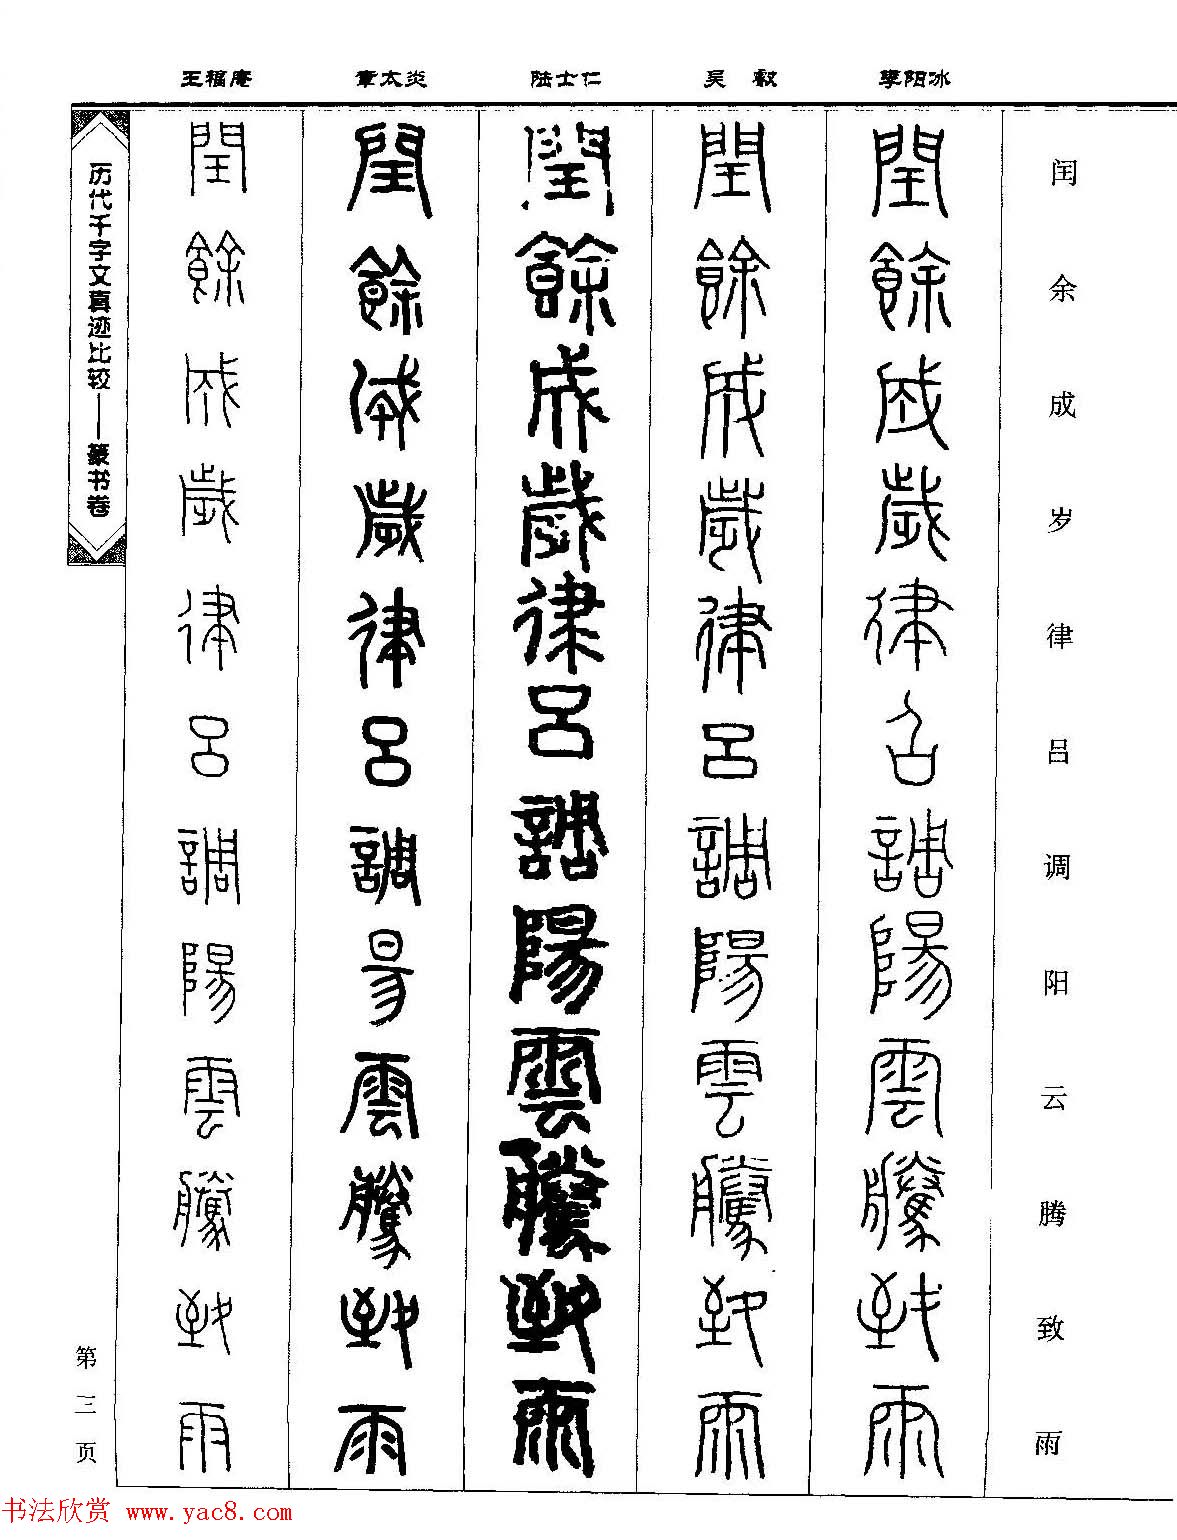 王福庵 章太炎 陆士仁 吴叡 李阳冰
闰余成岁律吕调阳云腾致雨
閏餘成歲律召調陽雲騰致雨
閏餘成歲律呂調陽雲騰致雨
閏餘成歲律呂調陽雲騰致雨
閏餘成歲律呂調昜雲騰致雨
閏餘成歲律呂調陽雲騰致雨
历代千字文真迹比较——篆书卷
第三页
书法欣赏 www.yac8.com